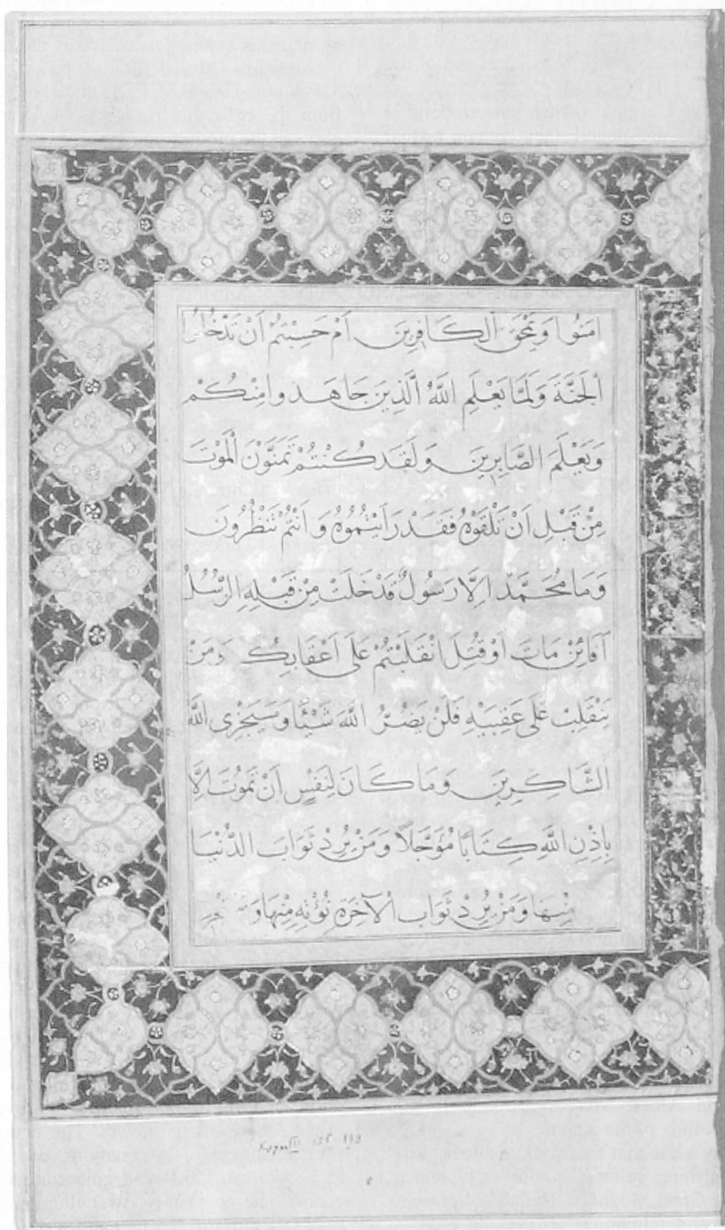 اٰمَنُوا وَيَمْحَقَ الْكَافِرِينَ اَمْ حَسِبْتُمْ اَنْ تَدْخُلُوا
الْجَنَّةَ وَلَمَّا يَعْلَمِ اللّٰهُ الَّذِينَ جَاهَدُوا مِنْكُمْ
وَيَعْلَمَ الصَّابِرِينَ وَلَقَدْ كُنْتُمْ تَمَنَّوْنَ الْمَوْتَ
مِنْ قَبْلِ اَنْ تَلْقَوْهُ فَقَدْ رَاَيْتُمُوهُ وَاَنْتُمْ تَنْظُرُونَ
وَمَا مُحَمَّدٌ اِلَّا رَسُولٌ قَدْ خَلَتْ مِنْ قَبْلِهِ الرُّسُلُ
اَفَائِنْ مَاتَ اَوْ قُتِلَ انْقَلَبْتُمْ عَلٰى اَعْقَابِكُمْ وَمَنْ
يَنْقَلِبْ عَلٰى عَقِبَيْهِ فَلَنْ يَضُرَّ اللّٰهَ شَيْئًا وَسَيَجْزِى اللّٰهُ
الشَّاكِرِينَ وَمَا كَانَ لِنَفْسٍ اَنْ تَمُوتَ اِلَّا
بِاِذْنِ اللّٰهِ كِتَابًا مُؤَجَّلًا وَمَنْ يُرِدْ ثَوَابَ الدُّنْيَا
مِنْهَا وَمَنْ يُرِدْ ثَوَابَ الْاٰخِرَةِ نُؤْتِهِ مِنْهَا وَ
III 135 193